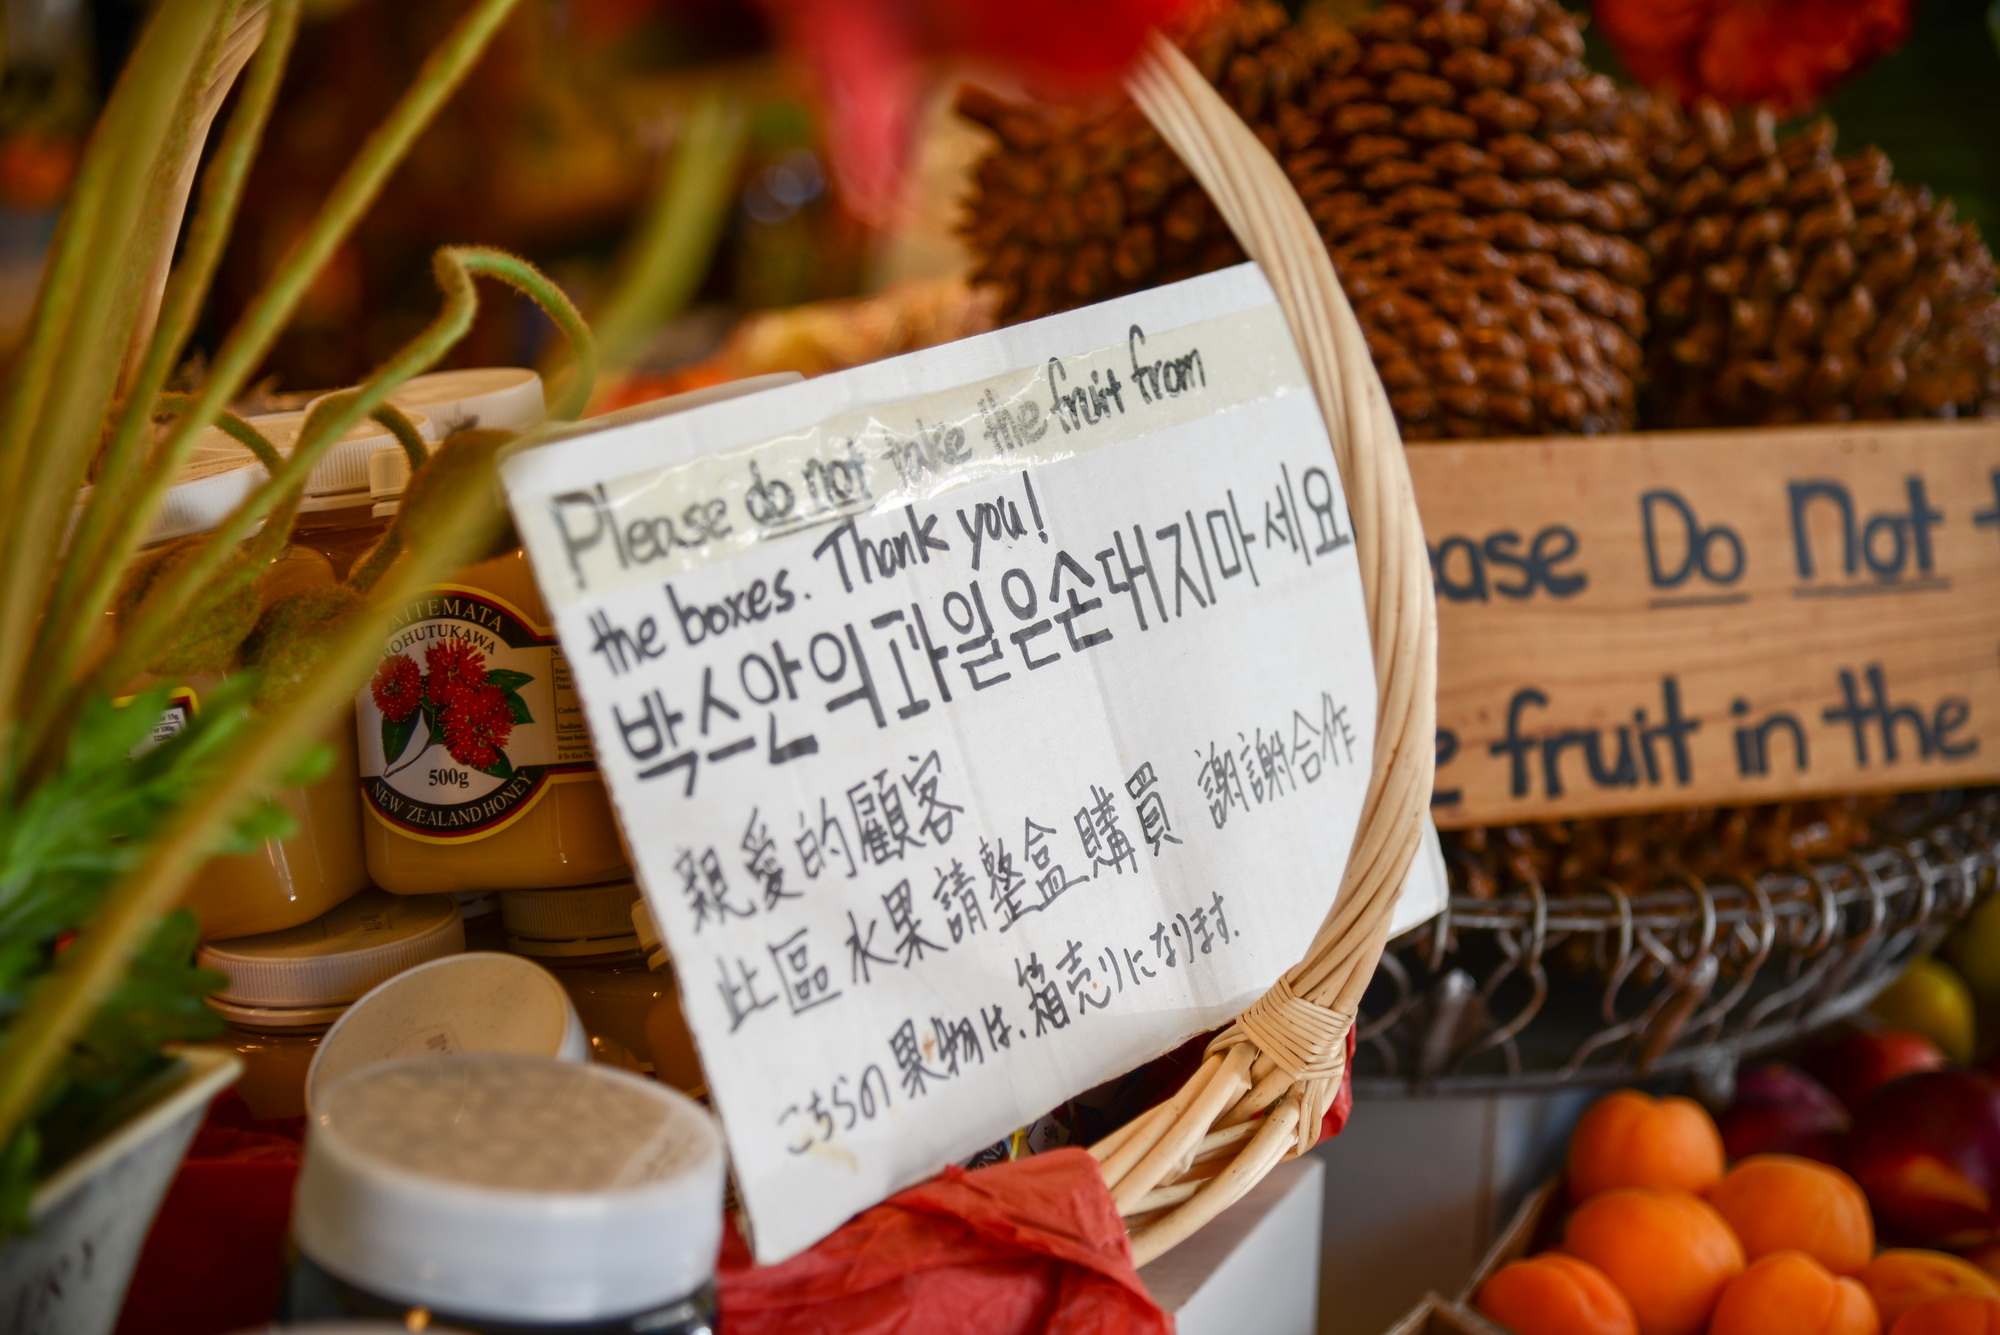 Please do not take the fruit from
the boxes. Thank you!
박스안의과일은손대지마세요
親愛的顧客
此區水果請整盒購買 謝謝合作
こちらの果物は、箱売りになります.
ase Do Not t
e fruit in the
AITEMATA
POHUTUKAWA
500g
NEW ZEALAND HONEY